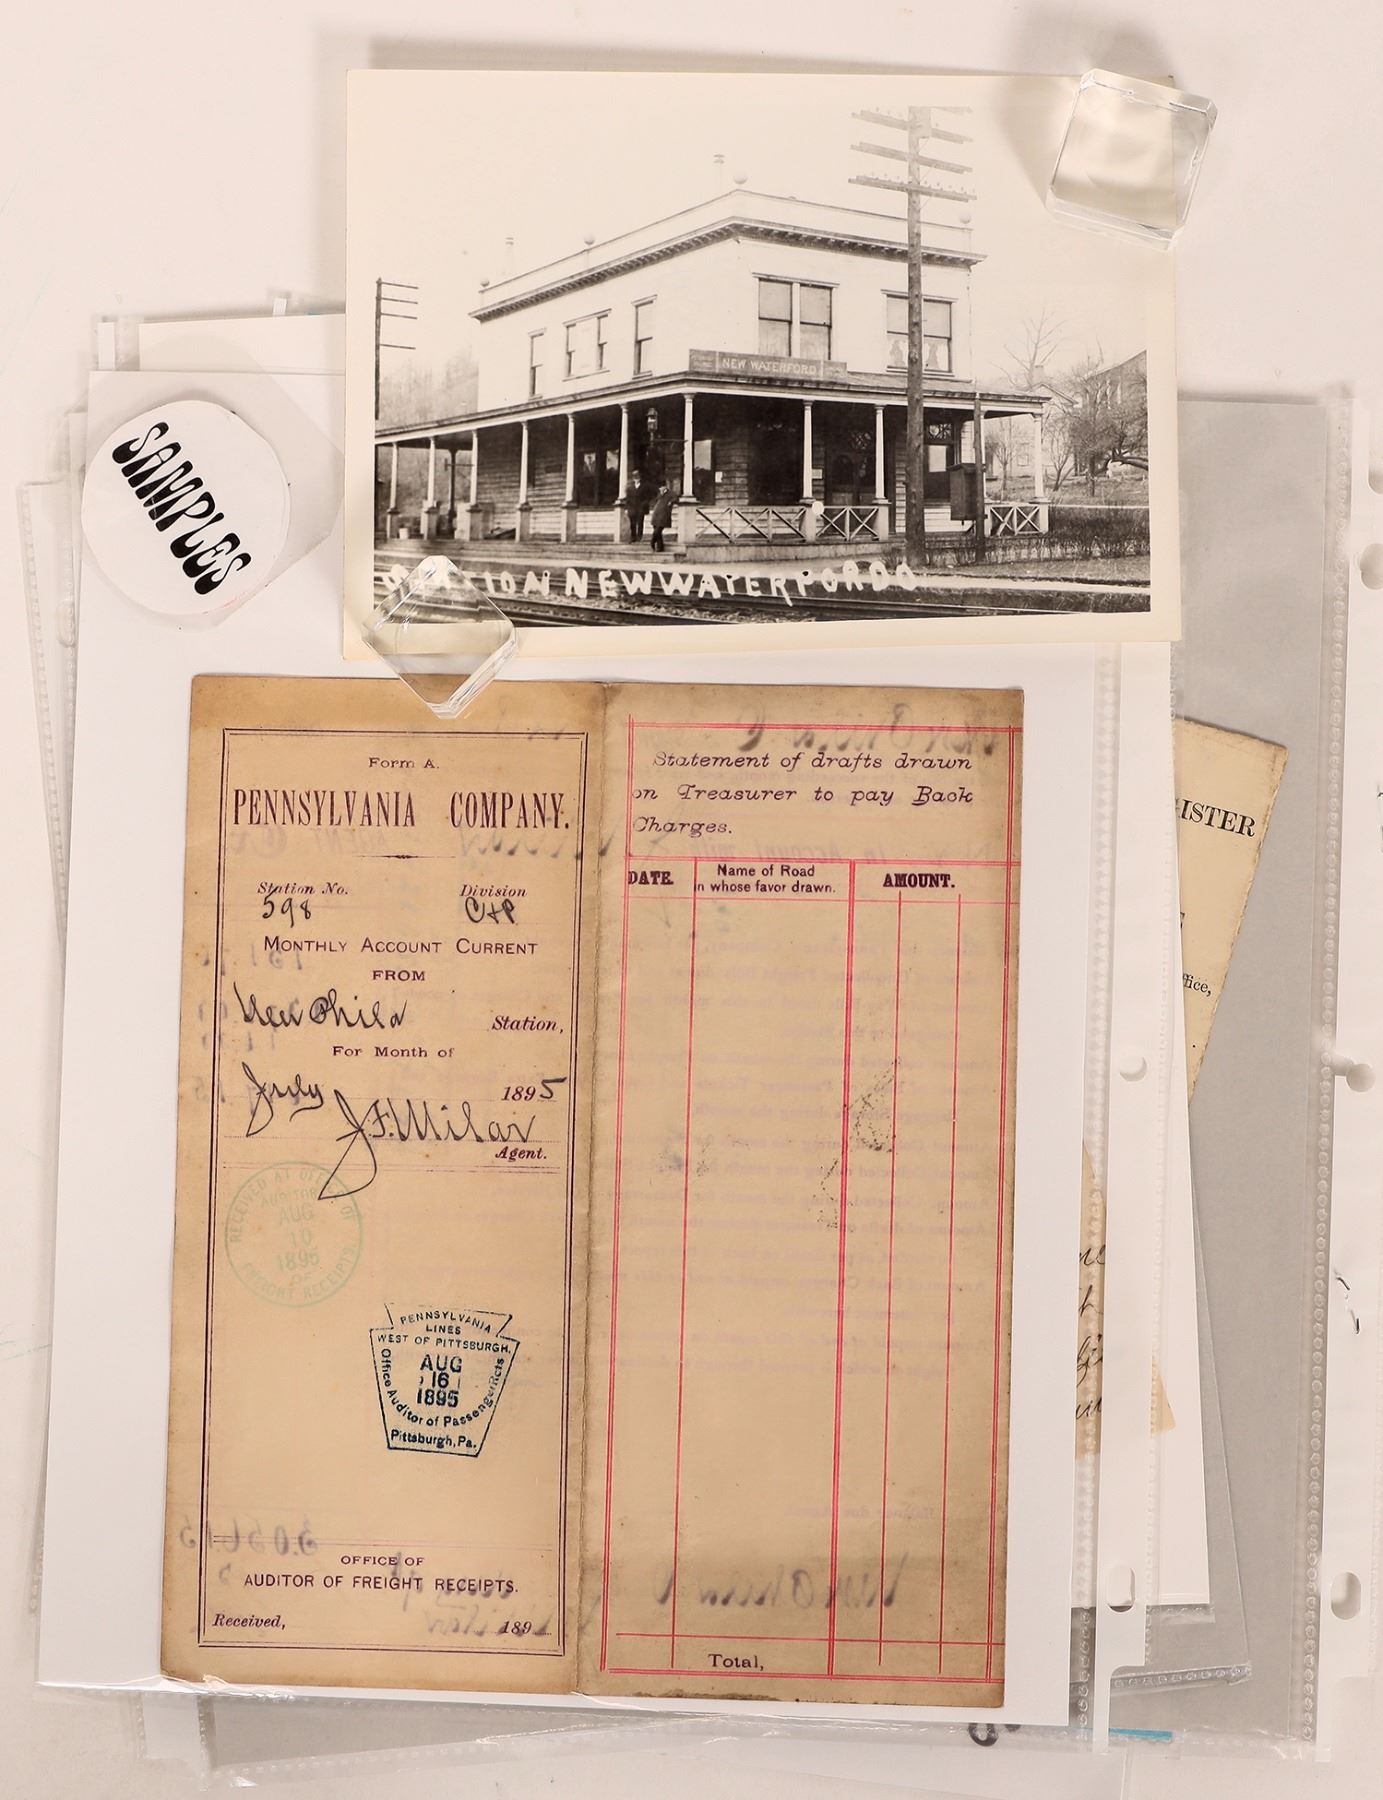 NEW WATERFORD
STATION NEW WATERFORD O
SAMPLES
Form A.
PENNSYLVANIA COMPANY.
Station No. Division
598 C&P
MONTHLY ACCOUNT CURRENT
FROM
New Phila Station,
For Month of
July 1895
J.F. Milar
Agent.
RECEIVED AT OFFICE OF
AUDITOR
AUG
10
1895
OF
FREIGHT RECEIPTS.
PENNSYLVANIA
LINES
WEST OF PITTSBURGH.
AUG
16
1895
Office Auditor of Passenger Rcts
Pittsburgh, Pa.
OFFICE OF
AUDITOR OF FREIGHT RECEIPTS.
Received, 189
Statement of drafts drawn
on Treasurer to pay Back
Charges.
DATE. Name of Road in whose favor drawn. AMOUNT.
Total,
ISTER
ffice,